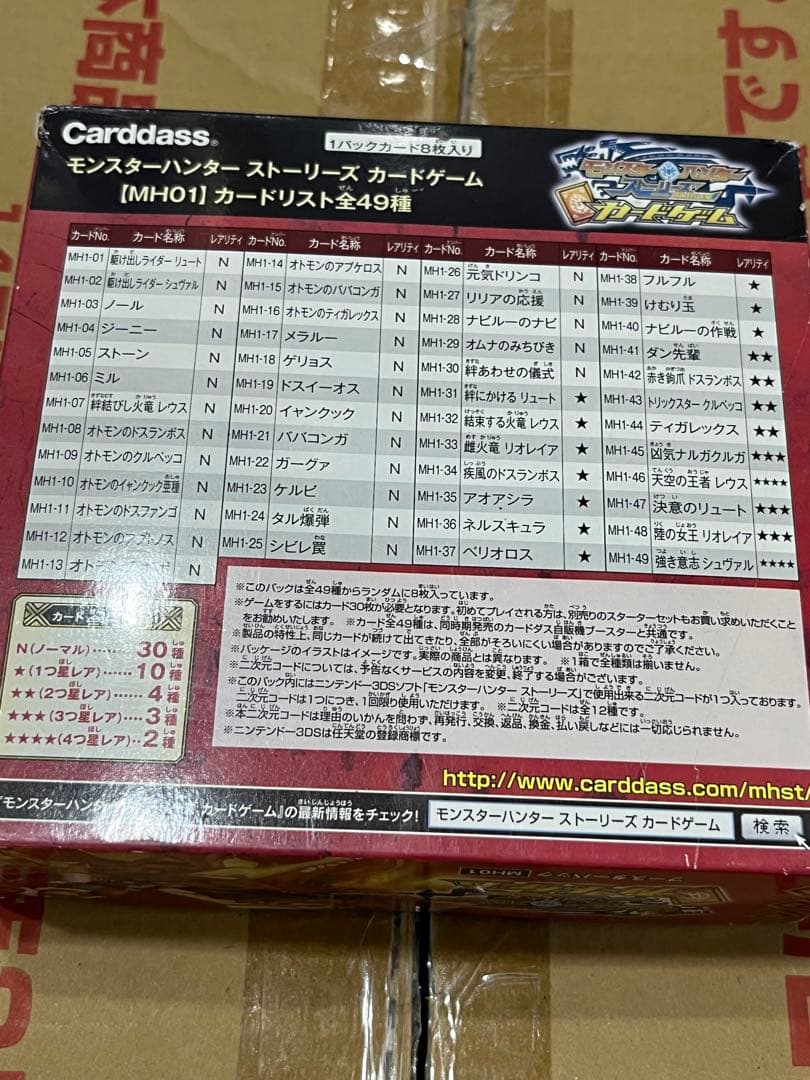 商品
です
Carddass®
1パックカード8枚入り
モンスターハンター ストーリーズ カードゲーム
【MH01】カードリスト全49種
モンスターハンター
ストーリーズ
カードゲーム
カードNo. カード名称 レアリティ
MH1-01 駆け出しライダー リュート N
MH1-02 駆け出しライダー シュヴァル N
MH1-03 ノール N
MH1-04 ジーニー N
MH1-05 ストーン N
MH1-06 ミル N
MH1-07 絆結びし火竜 レウス N
MH1-08 オトモンのドスランポス N
MH1-09 オトモンのクルペッコ N
MH1-10 オトモンのイャンクック亜種 N
MH1-11 オトモンのドスファンゴ N
MH1-12 オトモンのアプトノス N
MH1-13 オトモン N
カードNo. カード名称 レアリティ
MH1-14 オトモンのアプケロス N
MH1-15 オトモンのババコンガ N
MH1-16 オトモンのティガレックス N
MH1-17 メラルー N
MH1-18 ゲリョス N
MH1-19 ドスイーオス N
MH1-20 イャンクック N
MH1-21 ババコンガ N
MH1-22 ガーグァ N
MH1-23 ケルビ N
MH1-24 タル爆弾 N
MH1-25 シビレ罠 N
カードNo. カード名称 レアリティ
MH1-26 元気ドリンコ N
MH1-27 リリアの応援 N
MH1-28 ナビルーのナビ N
MH1-29 オムナのみちびき N
MH1-30 絆あわせの儀式 N
MH1-31 絆にかける リュート ★
MH1-32 結束する火竜 レウス ★
MH1-33 雌火竜 リオレイア ★
MH1-34 疾風のドスランポス ★
MH1-35 アオアシラ ★
MH1-36 ネルスキュラ ★
MH1-37 ベリオロス ★
カードNo. カード名称 レアリティ
MH1-38 フルフル ★
MH1-39 けむり玉 ★
MH1-40 ナビルーの作戦 ★
MH1-41 ダン先輩 ★★
MH1-42 赤き鉤爪 ドスランポス ★★
MH1-43 トリックスター クルペッコ ★★
MH1-44 ティガレックス ★★
MH1-45 凶気ナルガクルガ ★★★
MH1-46 天空の王者 レウス ★★★★
MH1-47 決意のリュート ★★★
MH1-48 陸の女王 リオレイア ★★★
MH1-49 強き意志 シュヴァル ★★★★
N(ノーマル)……30種
★(1つ星レア)……10種
★★(2つ星レア)…4種
★★★(3つ星レア)…3種
★★★★(4つ星レア)…2種
※このパックは全49種からランダムに8枚入っています。
※ゲームをするにはカード30枚が必要となります。初めてプレイされる方は、別売りのスターターセットもお買い求めいただくこと
をお勧めいたします。 ※カード全49種は、同時期発売のカードダス自販機ブースターと共通です。
※製品の特性上、同じカードが続けて出てきたり、全部がそろいにくい場合がありますのでご了承ください。
※パッケージのイラストはイメージです。実際の商品とは異なります。 ※1箱で全種類は揃いません。
※二次元コードについては、予告なくサービスの内容を変更、終了する場合がございます。
※このパック内にはニンテンドー3DSソフト「モンスターハンター ストーリーズ」で使用出来る二次元コードが1つ入っております。
二次元コードは1つにつき、1回限り使用いただけます。 ※二次元コードは、全12種です。
※本二次元コードは理由のいかんを問わず、再発行、交換、返品、換金、払い戻しなどには一切応じられません。
※ニンテンドー3DSは任天堂の登録商標です。
http://www.carddass.com/mhst/
『モンスターハンター カードゲーム』の最新情報をチェック! モンスターハンター ストーリーズ カードゲーム 検索
ブースターパック MH01